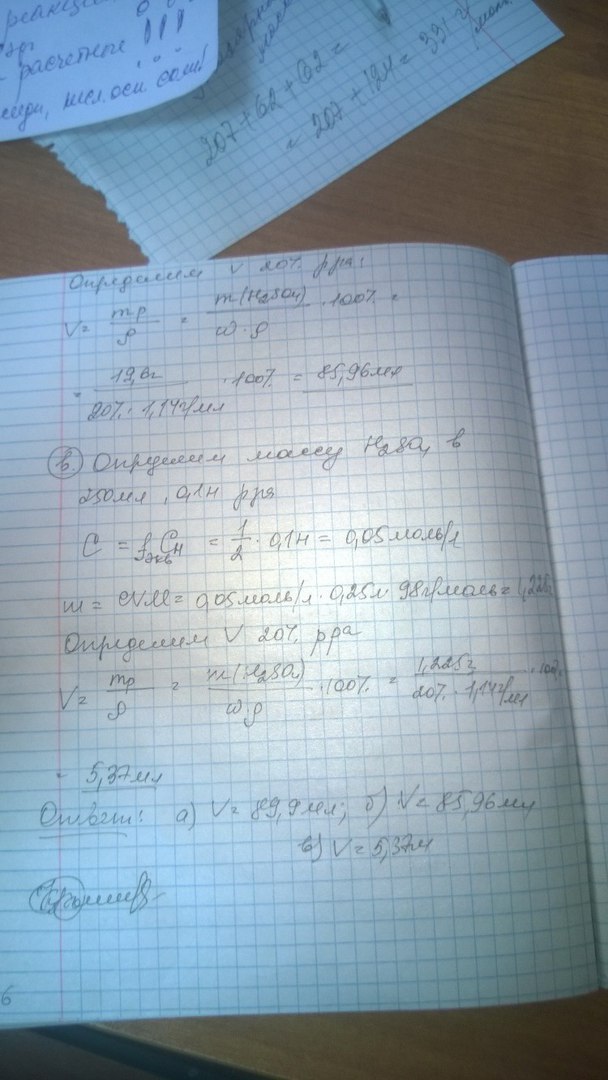 реакци
расчетные !!!
207+62+62=
= 207+124= 331 г/моль
Определим V 20% рра:
V= mр/ρ = m(H2SO4)/ω·ρ ·100% =
= 19,6г/20%·1,14г/мл ·100% = 85,96мл
в) Определим массу H2SO4 в
250мл, 0,1н рра
C = fэкв Cн = 1/2 · 0,1н = 0,05моль/л
m = CVM = 0,05моль/л · 0,25л · 98г/моль = 1,225г
Определим V 20% рра
V= mр/ρ = m(H2SO4)/ω·ρ ·100% = 1,225г/20%·1,14г/мл ·100%
= 5,37мл
Ответ: а) V= 89,9мл; б) V= 85,96мл
в) V= 5,37м
6